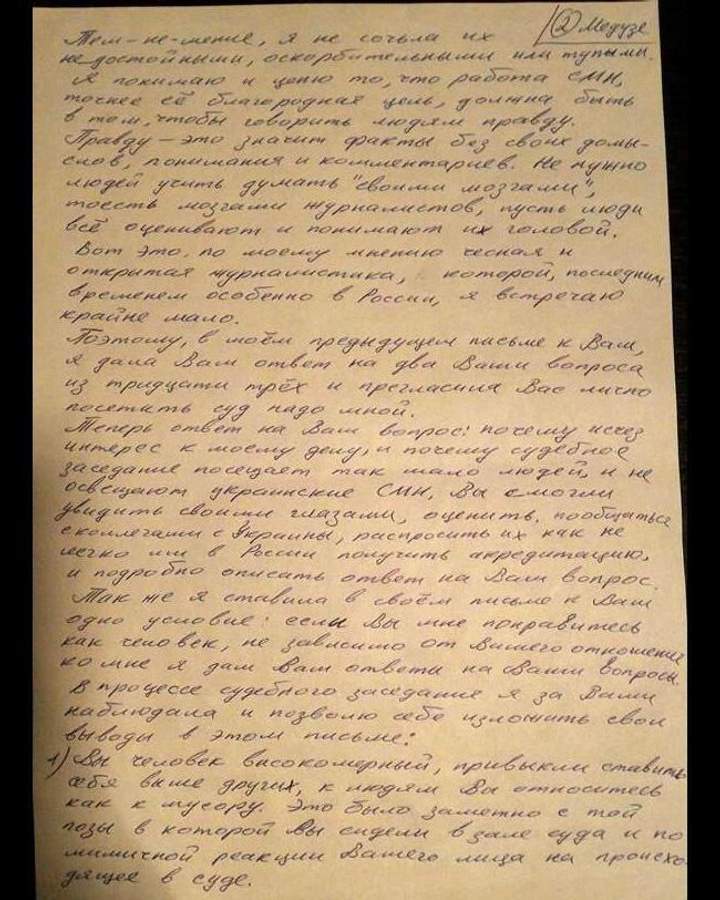 ② Медузе
Тем-не-менее, я не сочла их
не достойными, оскорбительными или тупыми.
Я понимаю и ценю то, что работа СМИ,
точнее её благородная цель, должна быть
в том, чтобы говорить людям правду.
Правду – это значит факты без своих домы-
слов, понимания и комментариев. Не нужно
людей учить думать "своими мозгами",
тоесть мозгами журналистов, пусть люди
всё оценивают и понимают их головой.
Вот это, по моему мнению чесная и
открытая журналистика, которой, последним
временем особенно в России, я встречаю
крайне мало.
Поэтому, в моём предыдущем письме к Вам,
я дала Вам ответ на два Ваши вопроса
из тридцати трёх и прегласила Вас лично
посетить суд надо мной.
Теперь ответ на Ваш вопрос: почему исчез
интерес к моему делу, и почему судебное
заседание посещает так мало людей, и не
освещают украинские СМИ, Вы смогли
увидить своими глазами, оценить, пообщаться
с коллегами с Украины, распросить их как не
легко им в России получить акредитацию,
и подробно описать ответ на Ваш вопрос.
Так же я ставила в своём письме к Вам
одно условие: если Вы мне понравитесь
как человек, не зависимо от Вашего отношения
ко мне я дам Вам ответы на Ваши вопросы.
В процессе судебного заседание я за Вами
наблюдала и позволю себе изложить свои
выводы в этом письме:
1) Вы человек высокомерный, привыкли ставить
себя выше других, к людям Вы относитесь
как к мусору. Это было заметно с той
позы в которой Вы сидели в зале суда и по
мимичной реакции Вашего лица на происхо-
дящее в суде.